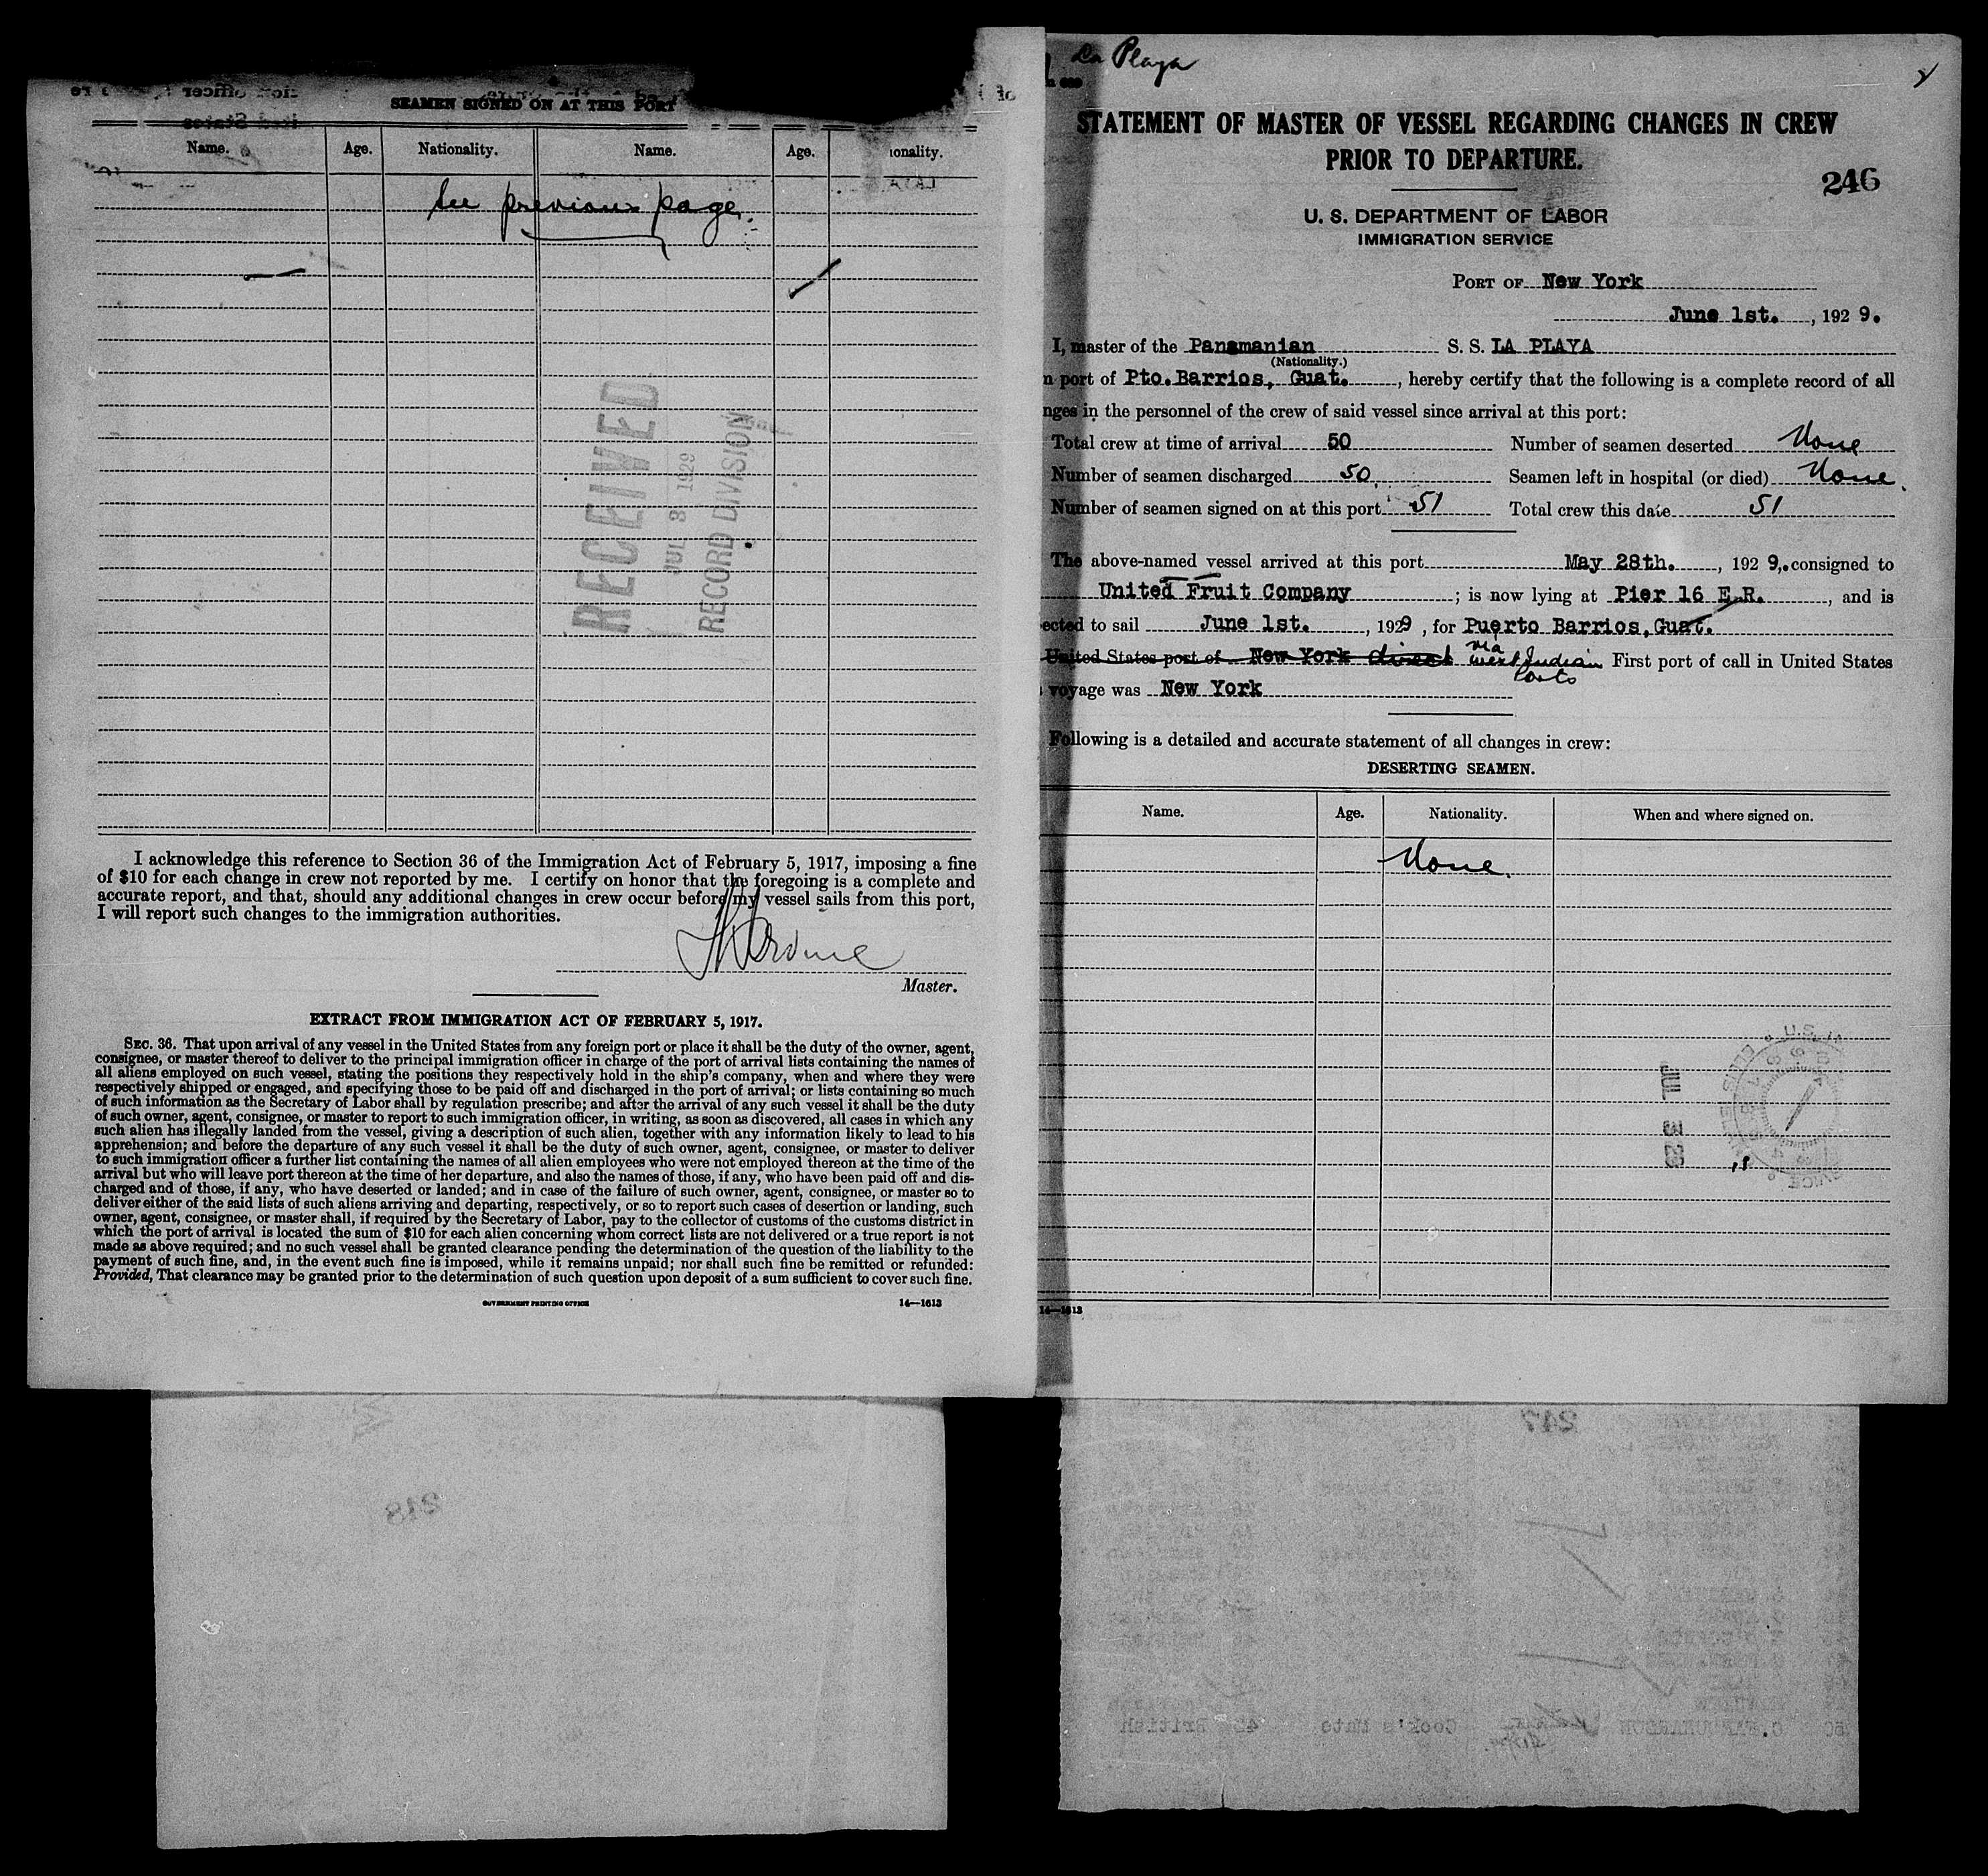 SEAMEN SIGNED ON AT THIS PORT
Name. Age. Nationality. Name. Age. ionality.
See previous page.
RECEIVED
JUL 3 1929
RECORD DIVISION
I acknowledge this reference to Section 36 of the Immigration Act of February 5, 1917, imposing a fine
of $10 for each change in crew not reported by me. I certify on honor that the foregoing is a complete and
accurate report, and that, should any additional changes in crew occur before my vessel sails from this port,
I will report such changes to the immigration authorities.
Master.
EXTRACT FROM IMMIGRATION ACT OF FEBRUARY 5, 1917.
SEC. 36. That upon arrival of any vessel in the United States from any foreign port or place it shall be the duty of the owner, agent,
consignee, or master thereof to deliver to the principal immigration officer in charge of the port of arrival lists containing the names of
all aliens employed on such vessel, stating the positions they respectively hold in the ship's company, when and where they were
respectively shipped or engaged, and specifying those to be paid off and discharged in the port of arrival; or lists containing so much
of such information as the Secretary of Labor shall by regulation prescribe; and after the arrival of any such vessel it shall be the duty
of such owner, agent, consignee, or master to report to such immigration officer, in writing, as soon as discovered, all cases in which any
such alien has illegally landed from the vessel, giving a description of such alien, together with any information likely to lead to his
apprehension; and before the departure of any such vessel it shall be the duty of such owner, agent, consignee, or master to deliver
to such immigration officer a further list containing the names of all alien employees who were not employed thereon at the time of the
arrival but who will leave port thereon at the time of her departure, and also the names of those, if any, who have been paid off and dis-
charged and of those, if any, who have deserted or landed; and in case of the failure of such owner, agent, consignee, or master so to
deliver either of the said lists of such aliens arriving and departing, respectively, or so to report such cases of desertion or landing, such
owner, agent, consignee, or master shall, if required by the Secretary of Labor, pay to the collector of customs of the customs district in
which the port of arrival is located the sum of $10 for each alien concerning whom correct lists are not delivered or a true report is not
made as above required; and no such vessel shall be granted clearance pending the determination of the question of the liability to the
payment of such fine, and, in the event such fine is imposed, while it remains unpaid; nor shall such fine be remitted or refunded:
Provided, That clearance may be granted prior to the determination of such question upon deposit of a sum sufficient to cover such fine.
GOVERNMENT PRINTING OFFICE 14—1613
La Playa
STATEMENT OF MASTER OF VESSEL REGARDING CHANGES IN CREW
PRIOR TO DEPARTURE.
246
U. S. DEPARTMENT OF LABOR
IMMIGRATION SERVICE
PORT OF New York
June 1st., 1929.
I, master of the Panamanian S. S. LA PLAYA
(Nationality.)
n port of Pto.Barrios, Guat., hereby certify that the following is a complete record of all
nges in the personnel of the crew of said vessel since arrival at this port:
Total crew at time of arrival 50 Number of seamen deserted None
Number of seamen discharged 50. Seamen left in hospital (or died) None.
Number of seamen signed on at this port 51 Total crew this date 51
The above-named vessel arrived at this port May 28th., 1929,. consigned to
United Fruit Company; is now lying at Pier 16 E.R., and is
ected to sail June 1st., 1929, for Puerto Barrios, Guat.
United States port of New York direct via West Indian Ports First port of call in United States
voyage was New York
Following is a detailed and accurate statement of all changes in crew:
DESERTING SEAMEN.
Name. Age. Nationality. When and where signed on.
None.
JUL 3 29
14—1613
218
247
50 C. Cook's Mate 45 British